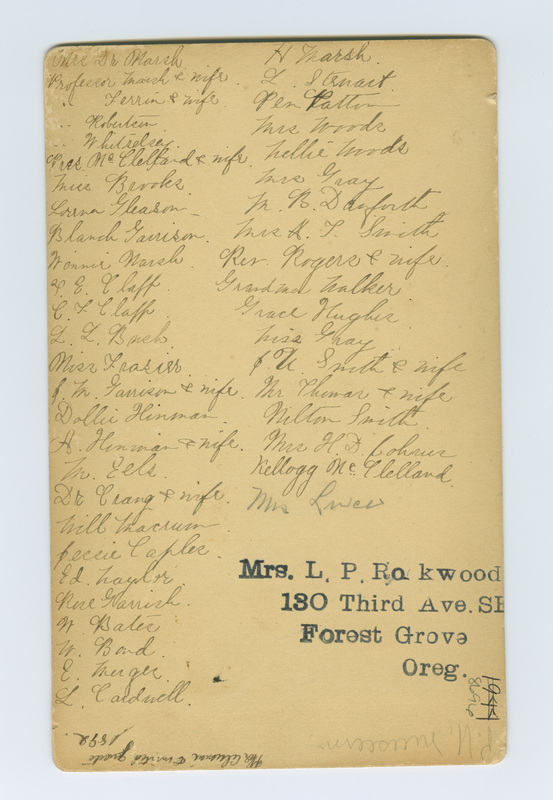 Mrs Dr Marsh
Professor Marsh & wife
" Ferrin & wife
" Robertson
" Whittelsey
Pres. McClelland & wife
Miss Brooks
Lorna Gleason
Blanch Garrison
Winnie Marsh
E. Clapp
C. F. Clapp
L. L. Bush
Miss Frazier
J. M. Garrison & wife
Dollie Hinman
A. Hinman & wife
M. Eels
Dr Crang & wife
Will Macrum
Jessie Caples
Ed. Naylor
Rose Garrish
W. Bates
W. Bond
E. Merges
L. Caldwell
H Marsh
L. Stewart
Pen Patton
Mrs Woods
Nellie Woods
Mrs Gray
M. B. Danforth
Mrs H. F. Smith
Rev. Rogers & wife
Grandma Walker
Grace Hughes
Miss Gray
J U. Smith & wife
Mr Thomas & wife
Milton Smith
Mrs H. D.
Kellogg McClelland
Mrs
Mrs. L. P. Ro kwood
130 Third Ave. SE
Forest Grove
Oreg.
1944
P. U. Museum
The Alumni & invited guests
1892